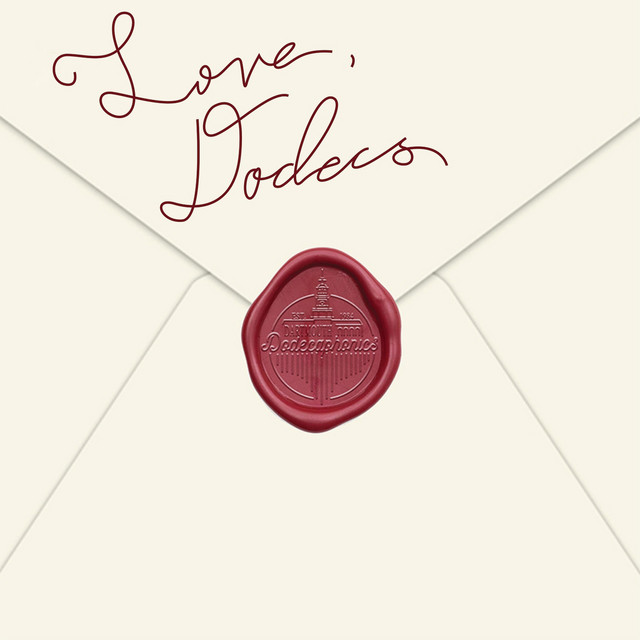 Love,
Dodecs
EST. 1984
DARTMOUTH
Dodecaphonics